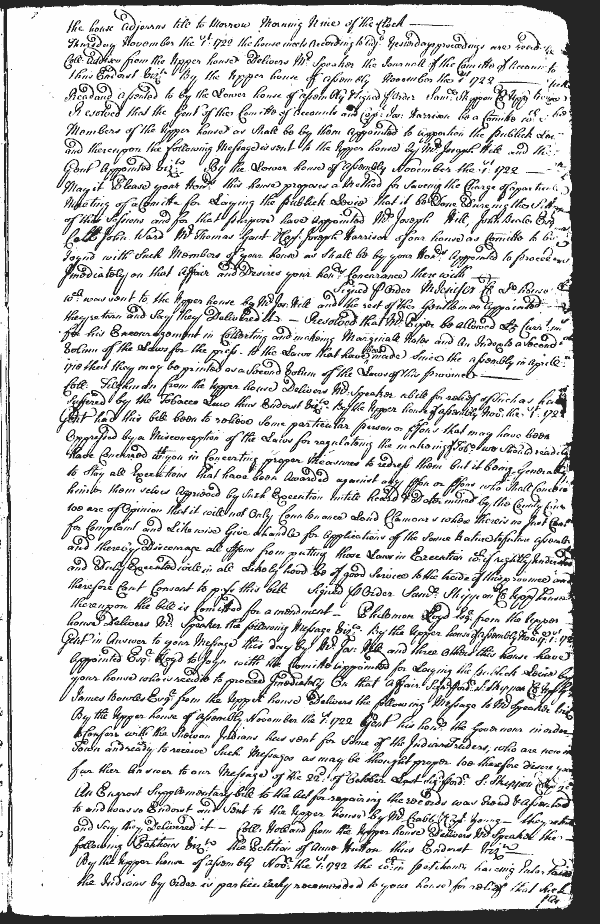 the house adjourns till to Morrow Morning Nine of the Clock
Thursday November the 1st. 1722 the house meets According to Adjt. Yesterdays proceedings are read
Coll. Addison from the Upper house Delivers Mr Speaker the Journall of the Comitte of Accounts
thus Endorst Vizt. By the Upper house of Assembly November the 1st. 1722
Read and assented to by the Lower house of Assembly Signed p Order Saml. Skippon Cl Upp house
Resolved that the Gent of the Comitte of Accounts and Capt. Jos. Harrison be a Comitte to
Members of the Upper house as shall be by them Appointed to apportion the Publick
and thereupon the following Message is sent to the Upper house by Mr Joseph Hill and the
Gent Appointed Vizt. By the Lower house of Assembly November the 1st. 1722
May it Please your Honrs. this house proposes a Method for Saveing the Charge of
Meeting of a Comitte for Laying the Publick Levie that it be Done Dureing the
of this Sessions and for that purpose have Appointed Mr Joseph Hill, John
Coll John Ward Mr Thomas Gant Capt Joseph Harrison of our house as Comitte to be
Joynd with Such Members of your house as shall be by your Honrs. Appointed to proceed
Imediately on that Affair and Desires your honrs. Concurrance therewith
Signed p Order M Jenifer Cl Lo house
wch. was sent to the Upper house by Mr Jos. Hill and the rest of the Gentlemen Appointed
they return and Say they Delivered it Resolved that Mr be allowed
for his Encouragement in Collecting and makeing Marginall Notes and An Index to a Second
Volum of the Laws for the press to the Laws that have been made Since the Assembly in Aprill
1718 that they may be printed as a Second Volum of the Laws of this Province
Coll. Tilghman from the Upper house Delivers Mr Speaker a bill for relief of Such as have
Suffered by the Tobacco Law thus Endorst Vizt. By the Upper house of Assembly Novr. the 1st. 1722
Gent had this bill been to relieve Some particular person or psons that may have been
Oppressed by a Misconception of the Laws for regulating the makeing of Tobo. we Should readily
have Concurred wth you in Concerting proper Measures to redress them but it being Generall
to Stay all Executions that have been Awarded against any pson or psons who shall
him or them selves Agrieved by Such Execution Untill heard & Determined by the County
we are of Opinion that it will not Only Countenance Loud Clamours where there is no Just
for Complaint and Likewise Give a handle for Applications of the Same Nature to future
and thereby Discourage all psons from putting those Laws in Execution wch. if rightly
and Duly Executed will in all Likelyhood be of good Service to the trade of this province
therefore Cant Consent to pass this bill Signed p Order Saml. Skippon Cl Upp house
thereupon the bill is Comitted for amendment Philemon Lloyd Esqr. from the Upper
house Delivers Mr. Speaker the following Message Vizt. By the Upper house of Assembly Novr. 1st. 1722
Gent in Answer to your Message this day by Mr Jos. Hill and three Others this house have
Appointed Esqrs. to Joyn with the Comitte appointed for Laying the Publick Levie by
your house who is ready to proceed Imediately On that Affair Signd p ordr. S. Skippon Cl Upp
James Bowles Esqr. from the Upper house Delivers the following Message to Mr Speaker Vizt
By the Upper house of Assembly November the 1st. 1722 Gent his honr. the Governour in order
to Confer with the Indians has sent for Some of the Indian Traders, who are now in
Town and ready to receive Such Messages as may be thought proper we therefore desire your
further Answer to our Message of the 22d. of October Last Signd p ordr. S. Skippon
An Engrost Supplementary bill to the Act for repairing the records was read & Assented
to and was so Endorst and Sent to the Upper house by Mr Crabb & Capt. Young they return
and Say they Delivered it Coll. Holland from the Upper house Delivers Mr Speaker the
following Petition Vizt. the Petition of Anne thus Endorst Vizt
By the Upper house of Assembly Novr. the 1st. 1722 the Petitioner haveing
the Indians by Order is particularly recomended to your house for relief that